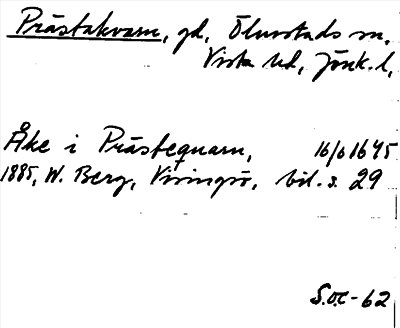 Prästakvarn, gd, Ölmstads sn,
Vista hd, Jönk.l,
Åke i Prästequarn, 16/6 1645
1885, W. Berg, Visingsö, bil. s. 29
S.O.C-62